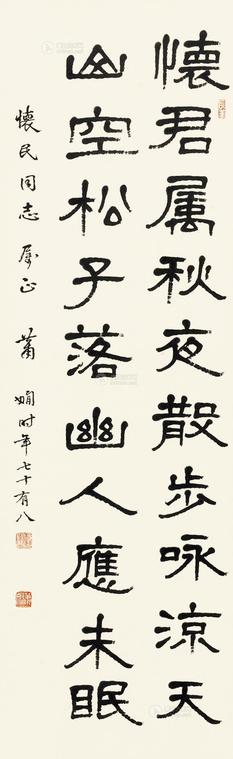 懷君属秋夜散步咏涼天
山空松子落幽人應未眠
懷民同志属正 蕭嫻时年七十有八